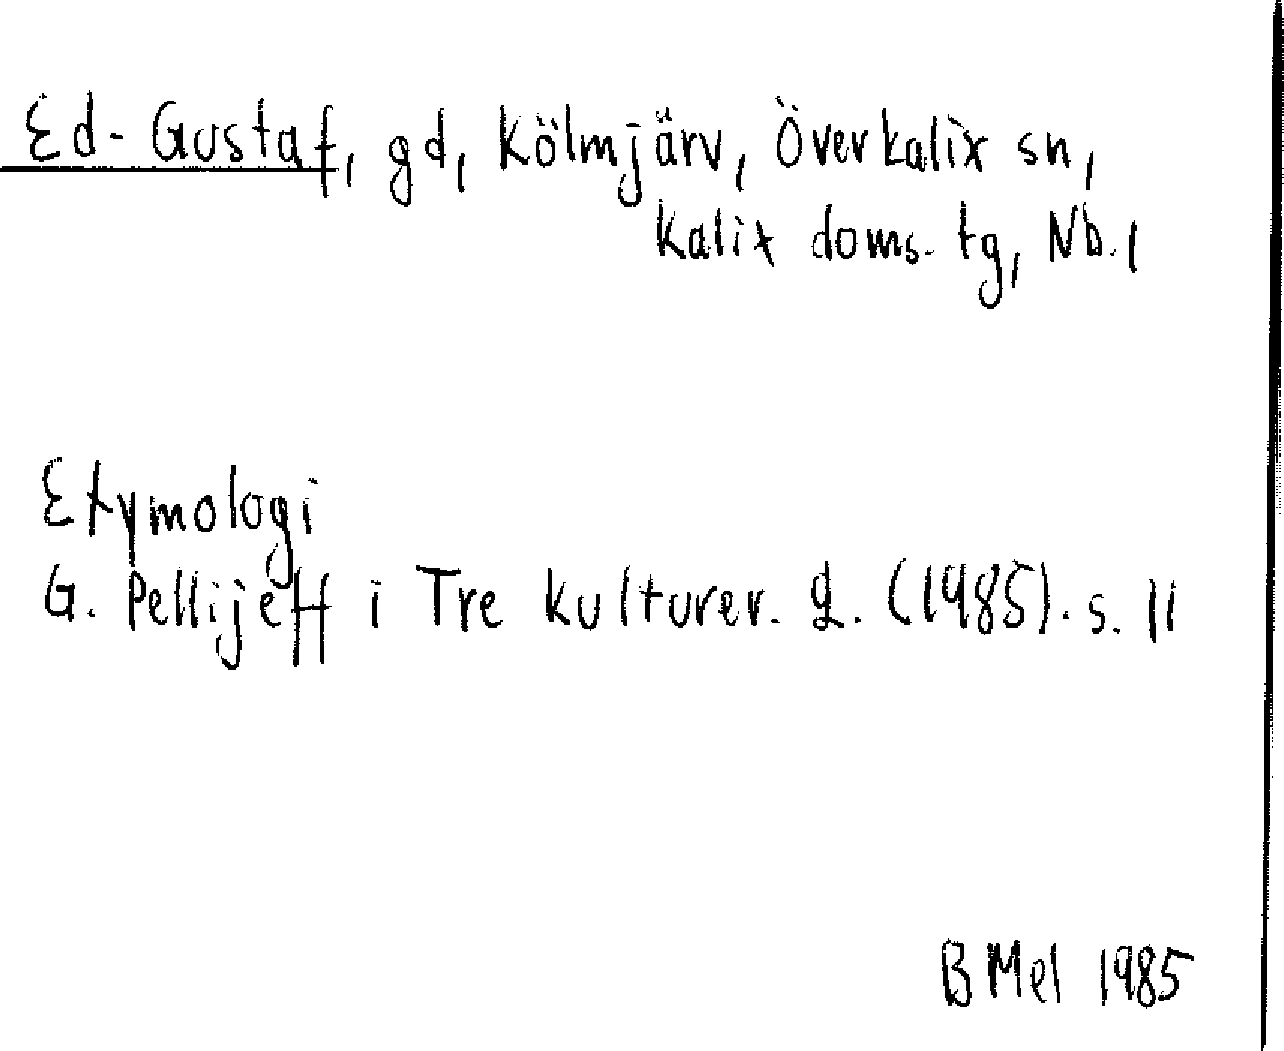 Ed-Gustaf, gd, Kölmjärv, Överkalix sn,
Kalix doms. tg, Nb.,
Etymologi
G. Pellijeff i Tre kulturer. 2. (1985). s. 11
B Mel 1985